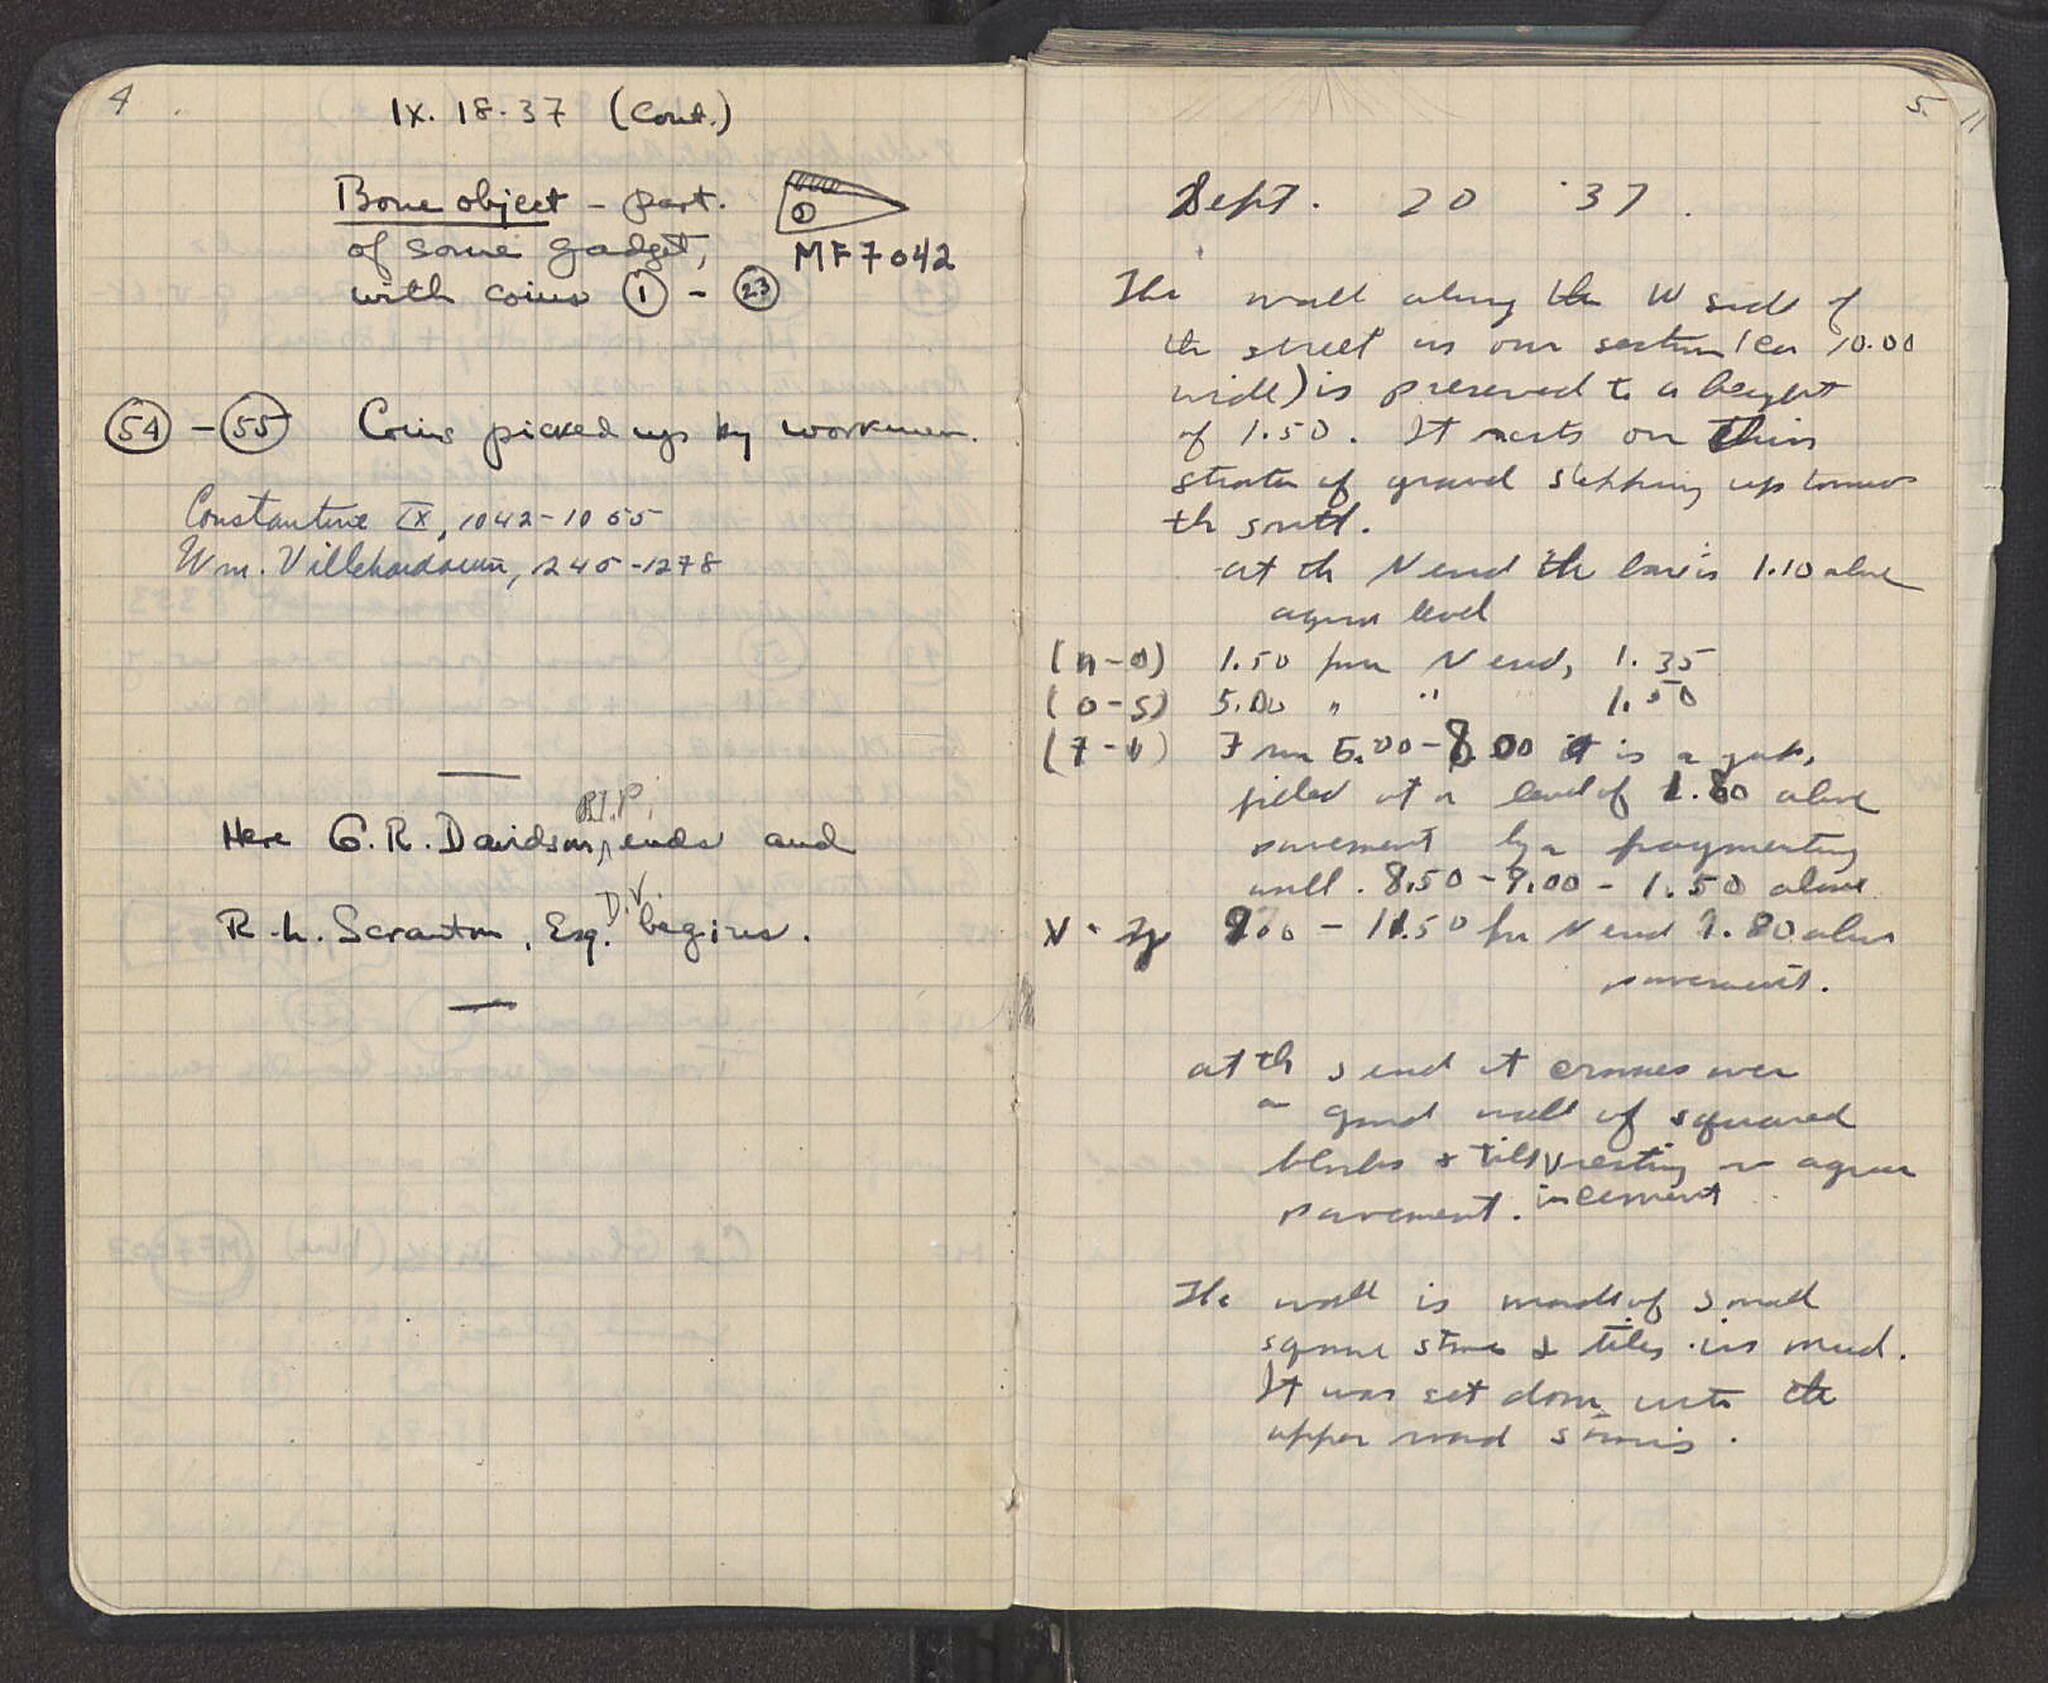 4
IX. 18.37 (Cont.)
Bone object - part.
of some gadget,
MF7042
with coins 1 - 23
54 - 55 Coins picked up by workmen.
Constantine IX, 1042-1055
Wm. Villehardouin, 1245-1278
R.I.P.
Here G.R. Davidson, ends and
D.V.
R.L. Scranton, Esq. begins.
5.
11
Sept. 20 '37.
The wall along the W side of
the street in our section (ca 10.00
wide) is preserved to a height
of 1.50. It rests on thin
strata of gravel stepping up toward
the south.
at the N end the base is 1.10 above
agora level
(n-o) 1.50 from N end, 1.35
(o-s) 5.00 " " 1.50
From 5.00-8.00 it is a gap,
filled at a level of 1.80 above
pavement by a fragmentary
wall. 8.50-9.00 - 1.50 above
- 11.50 fr N end 1.80 above
pavement.
at the S end it crosses over
a good wall of squared
blocks & tiles resting on agora
in cement
pavement.
The wall is made of small
square stones & tiles in mud.
It was set down into the
upper road strosis.